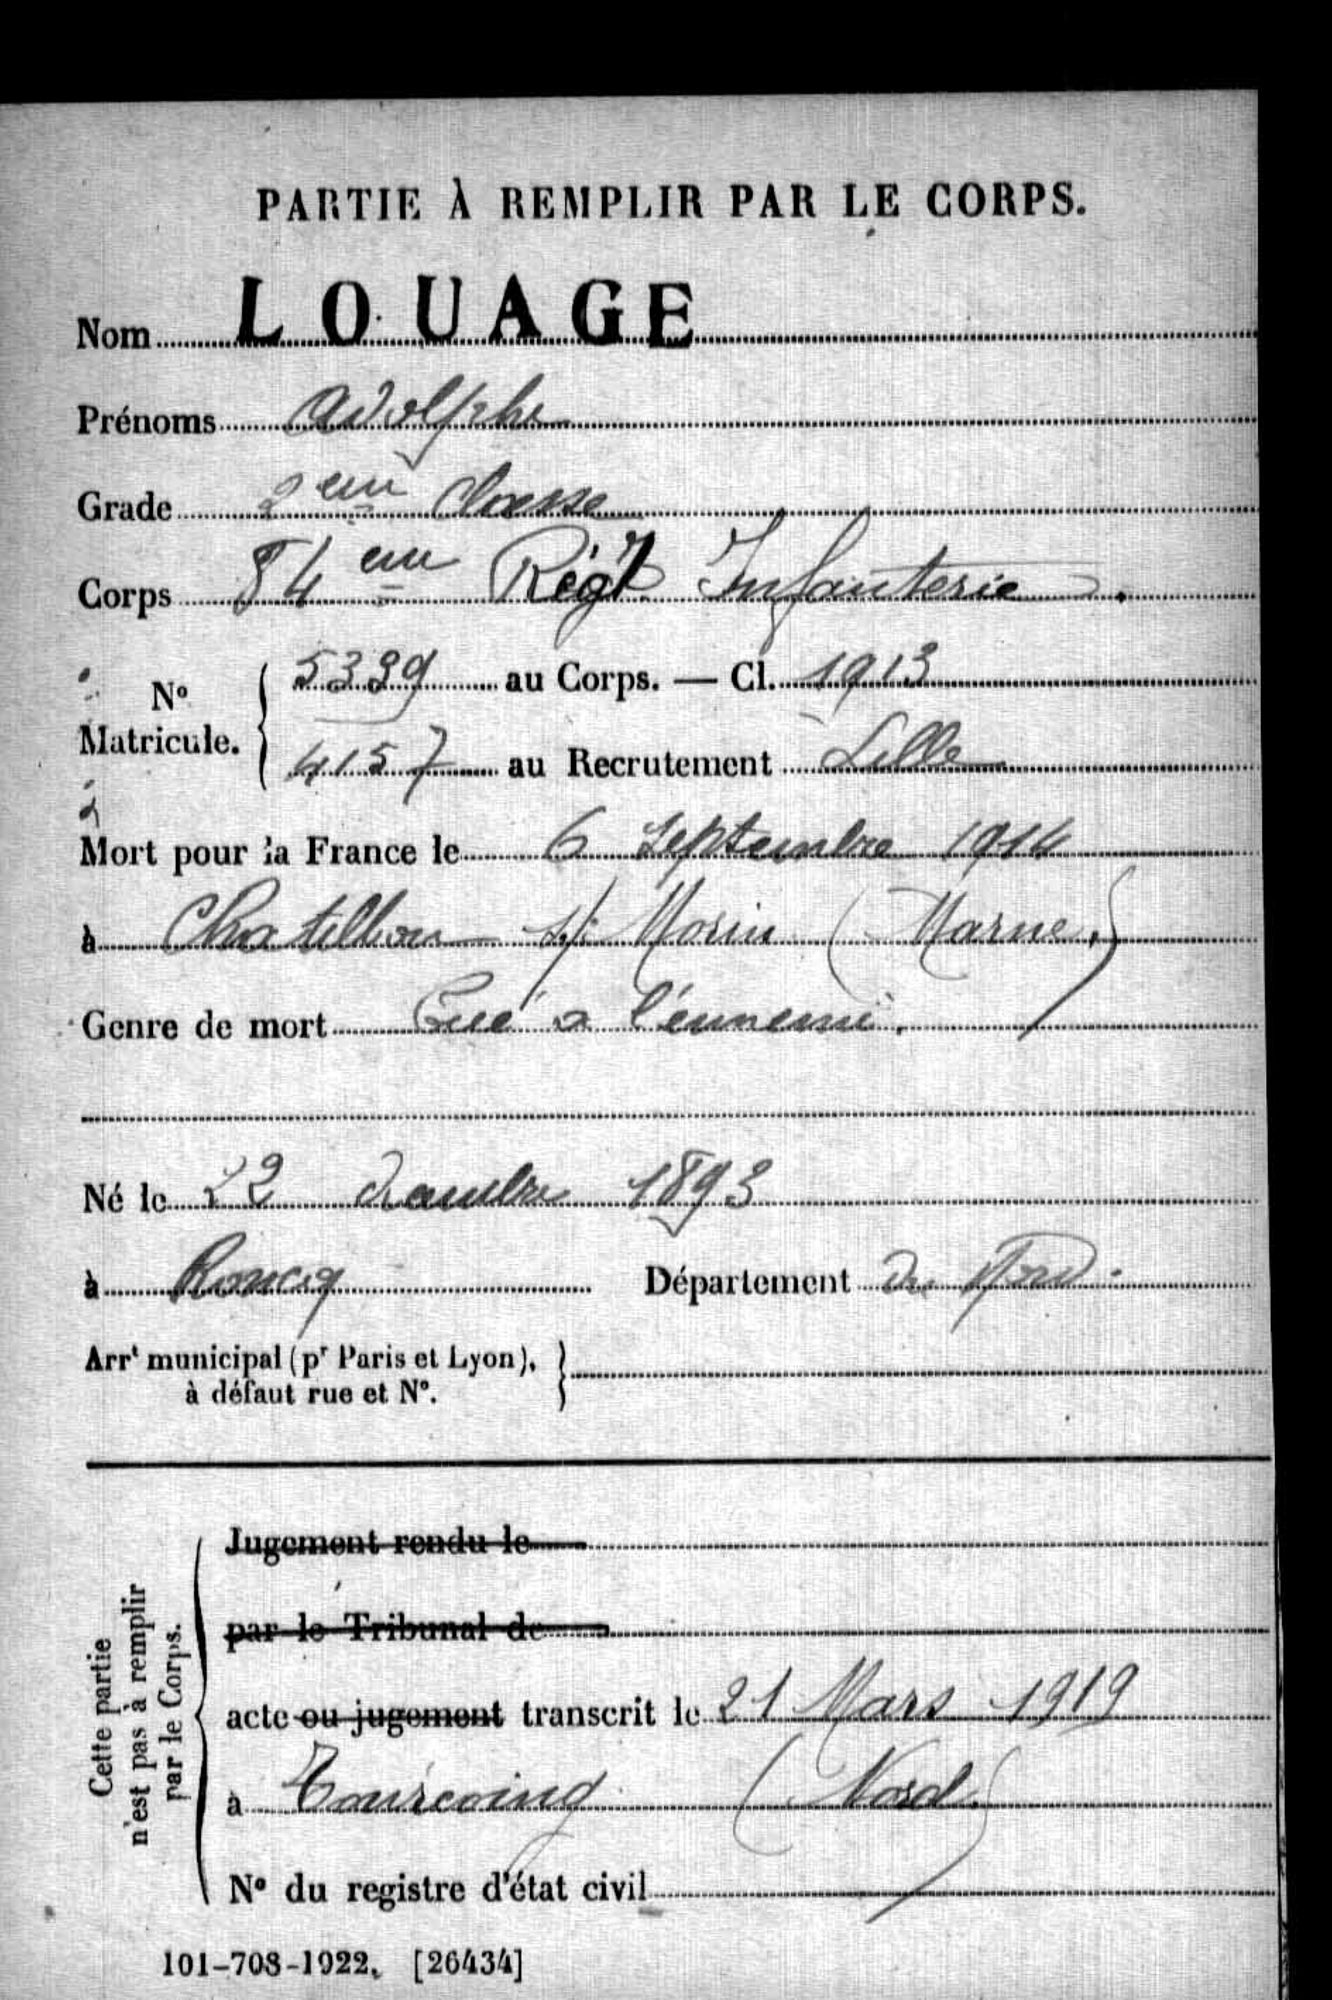 PARTIE À REMPLIR PAR LE CORPS.
Nom LOUAGE
Prénoms Adolphe
Grade 2 em Classe
Corps 84 em Régt Infanterie.
N° Matricule. { 5339 au Corps. — Cl. 1913
4157 au Recrutement Lille
Mort pour la France le 6 Septembre 1914
à Chatillon s/ Morin (Marne.)
Genre de mort Tué à l'ennemi.
Né le 22 1893
à Roncq Département du Nord.
Arrt municipal (pr Paris et Lyon), }
à défaut rue et N°.
Cette partie
n'est pas à remplir
par le Corps.
Jugement rendu le
par le Tribunal de
acte ou jugement transcrit le 21 Mars 1919
à Tourcoing (Nord)
N° du registre d'état civil
101-708-1922. [26434]